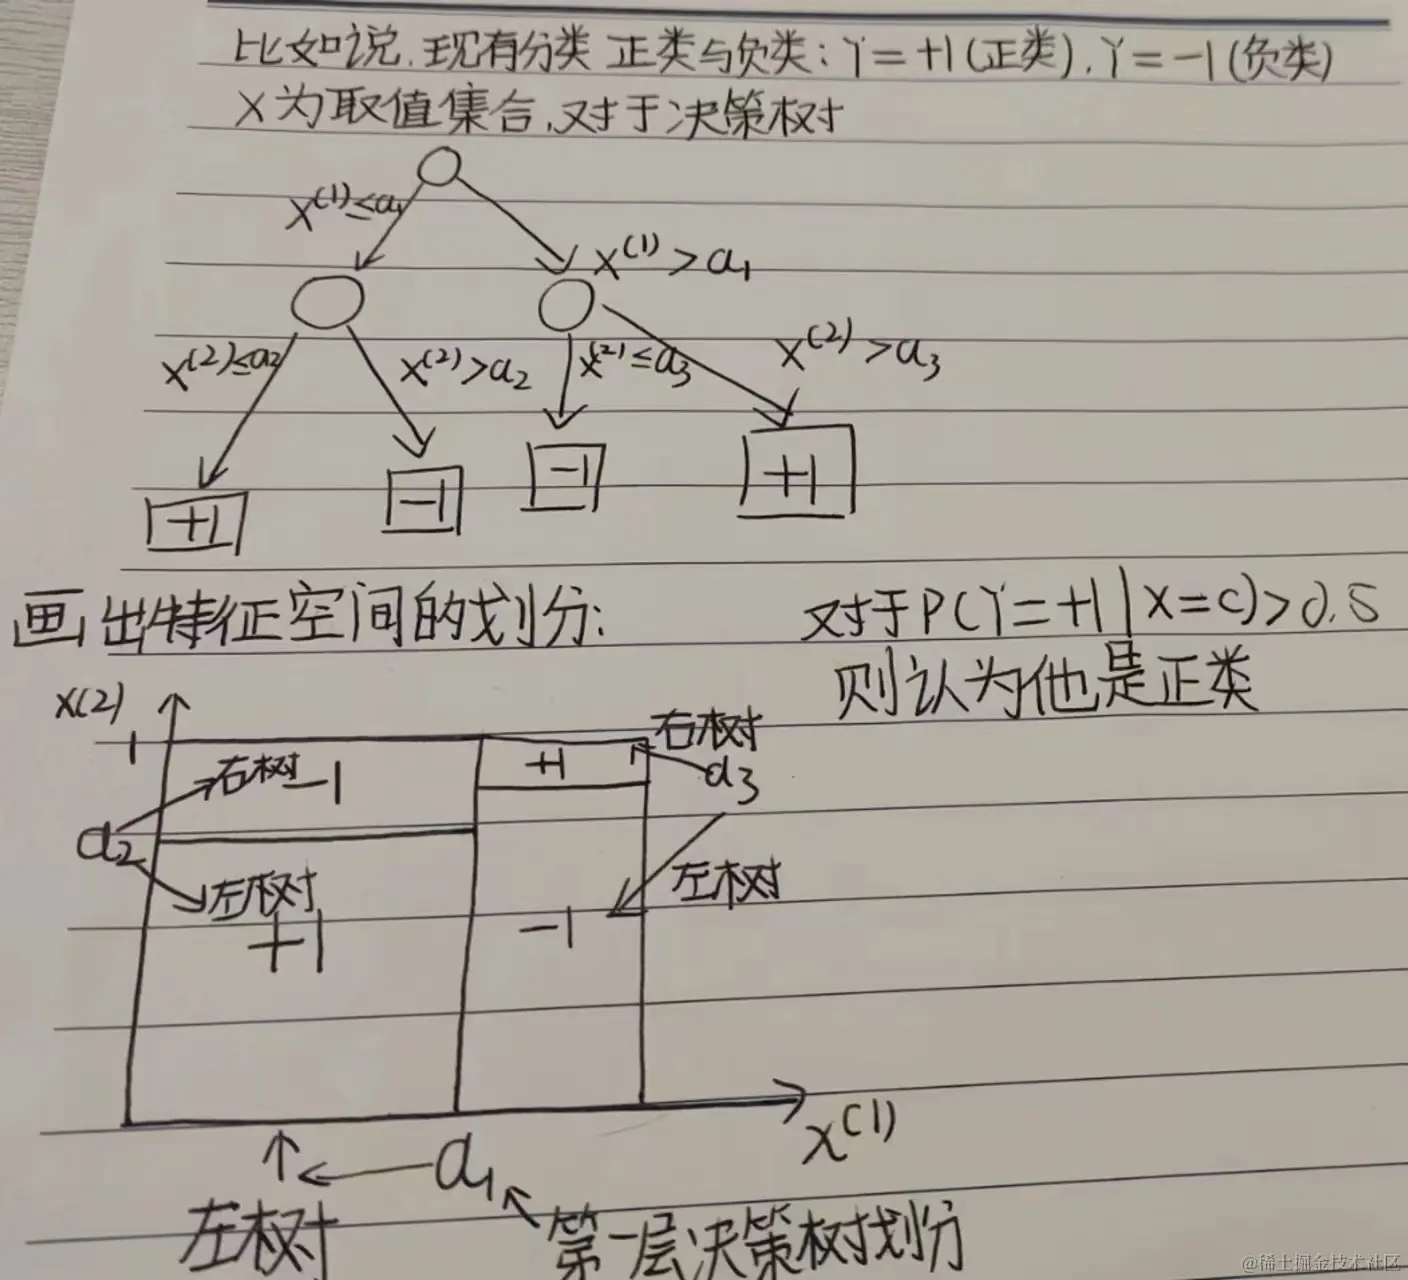 比如说,现有分类 正类与负类:Y=+1(正类),Y=-1(负类)
X为取值集合,对于决策树
X(1)≤a1
X(1)>a1
X(2)≤a2
X(2)>a2
X(2)≤a3
X(2)>a3
+1
-1
-1
+1
画出特征空间的划分:
对于P(Y=+1|X=C)>0.5
则认为他是正类
X(2)
1
右树
-1
+1
右树
a3
a2
左树
+1
-1
左树
X(1)
a1
左树
第一层决策树划份
@稀土掘金技术社区